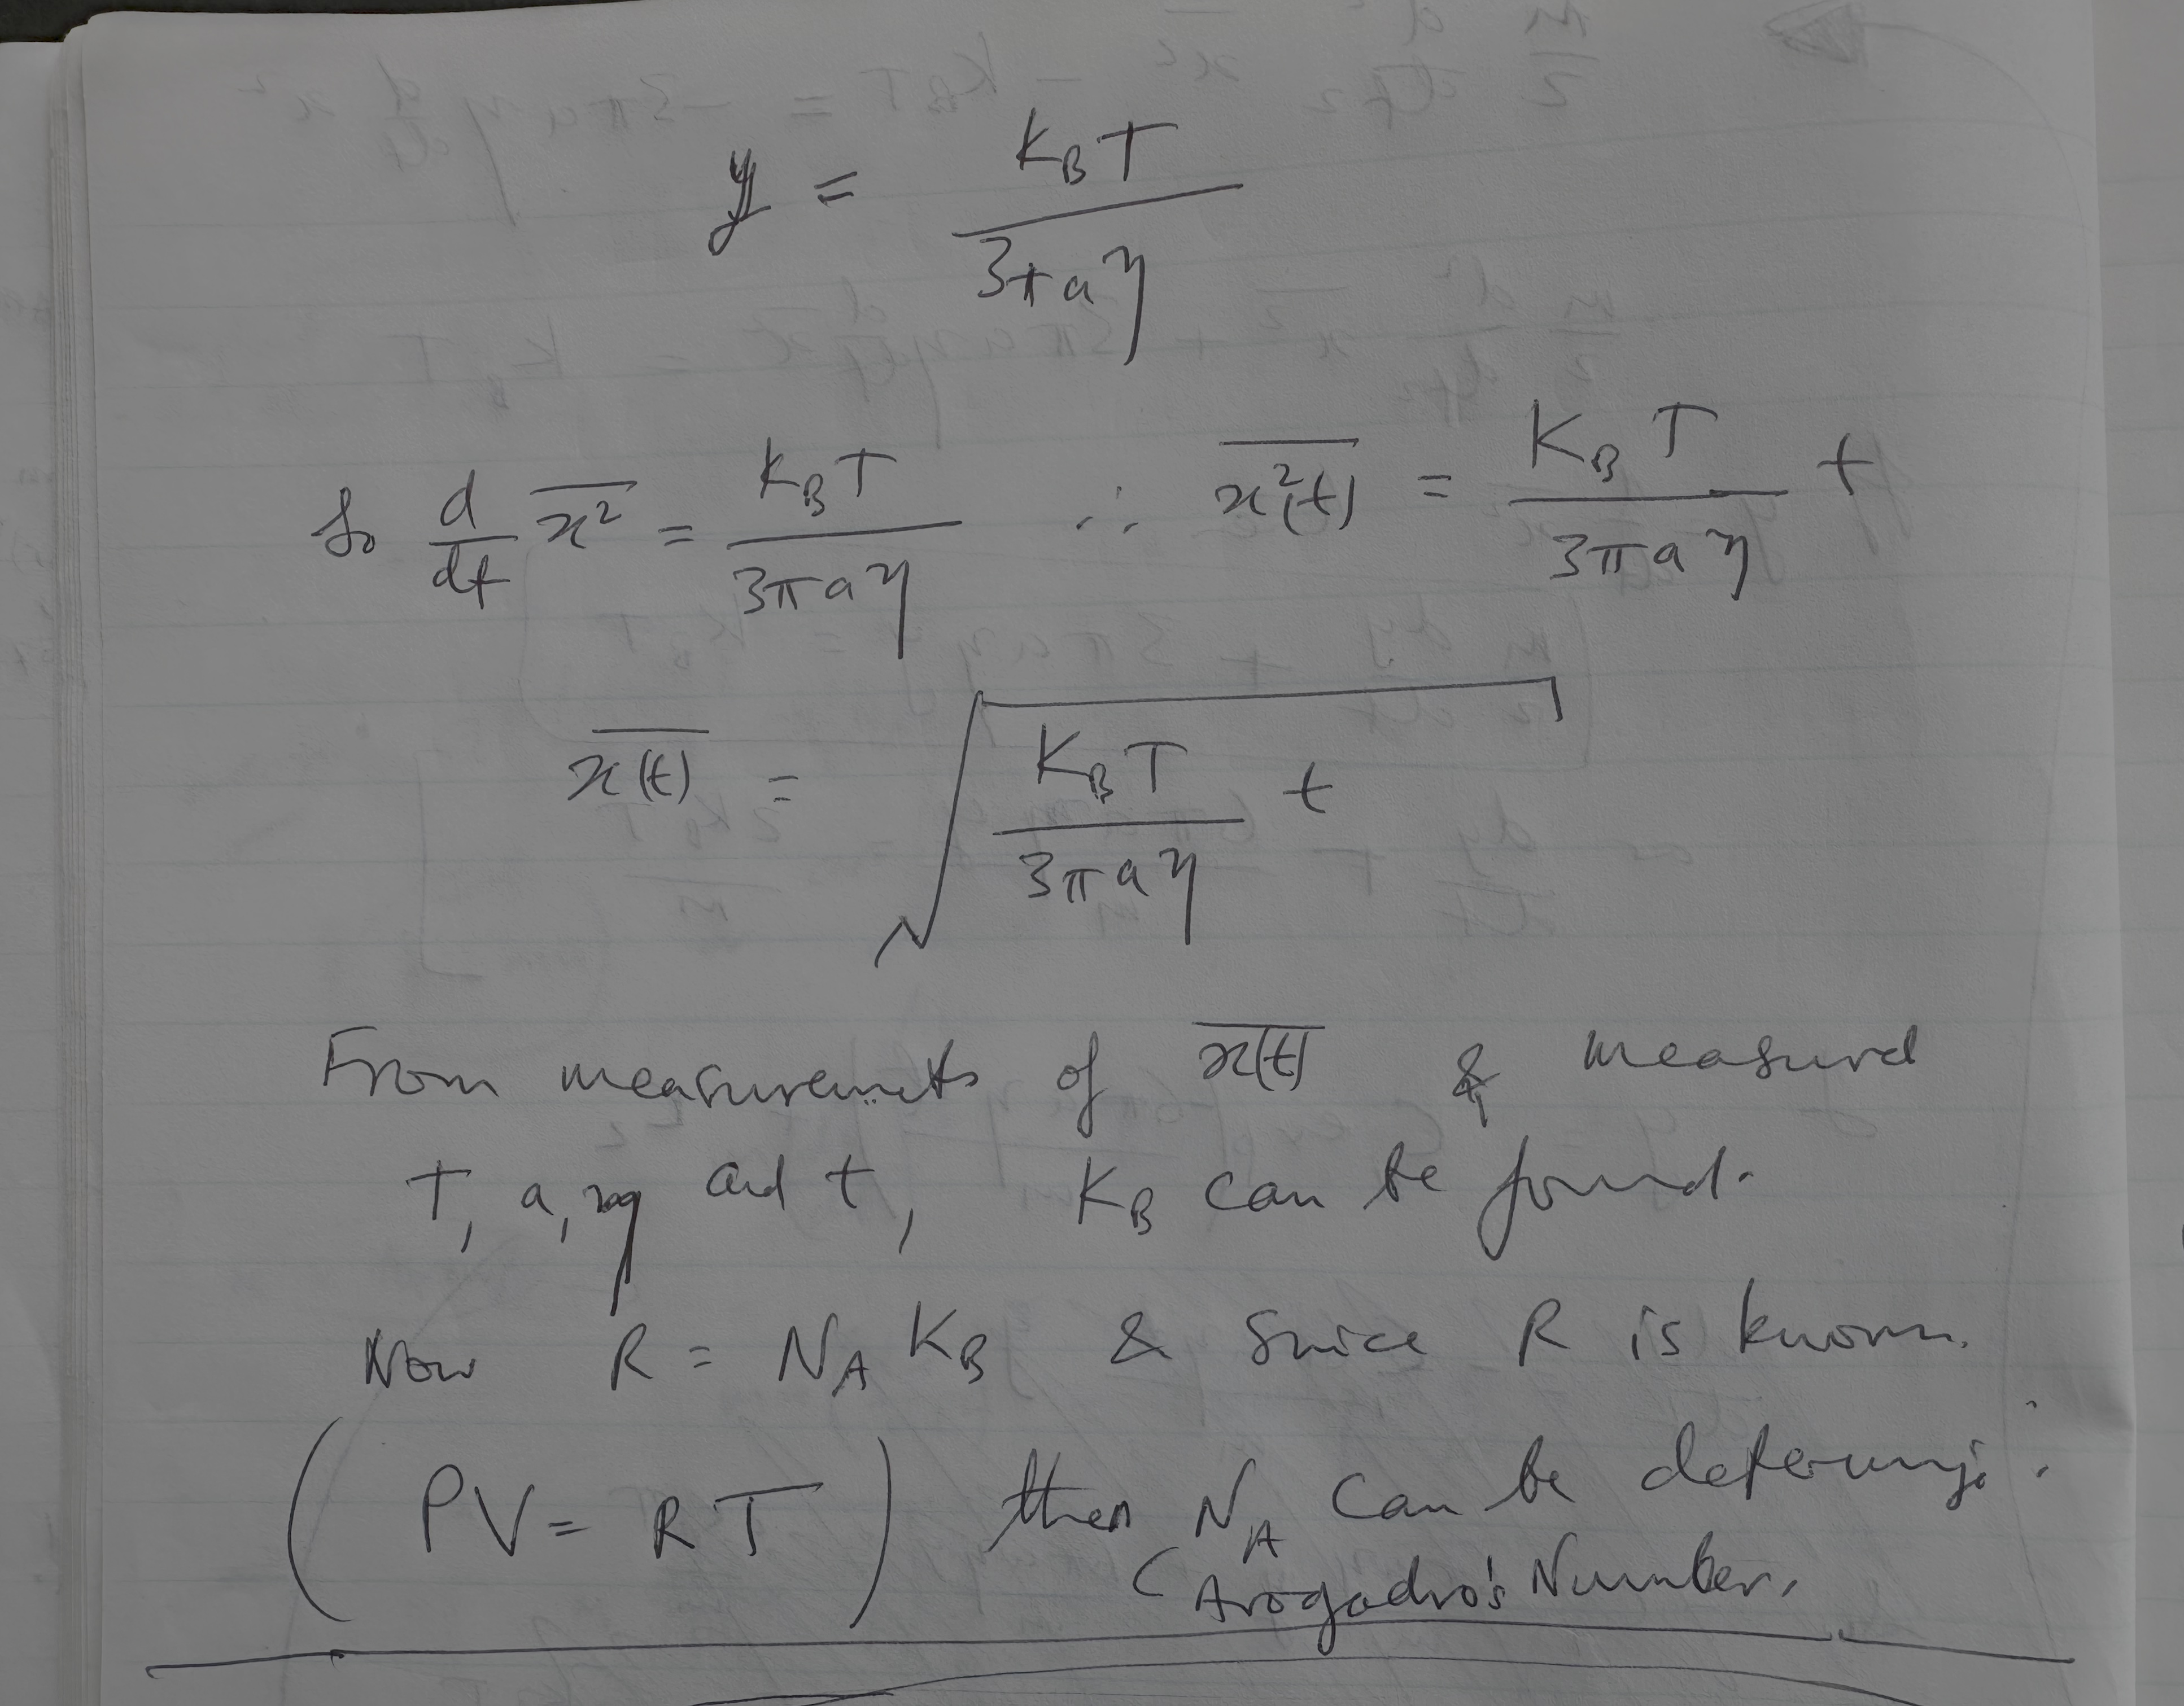 y = K_B T / 3πaη
So d/dt x̅² = K_B T / 3πaη ∴ \overline{x²(t)} = K_B T / 3πaη t
\overline{x(t)} = √( K_B T / 3πaη t )
From measurements of \overline{x(t)} & measured
T, a, η and t, K_B can be found.
Now R = N_A K_B & Since R is known.
( PV = RT ) then N_A can be
( Avogadro's Number.